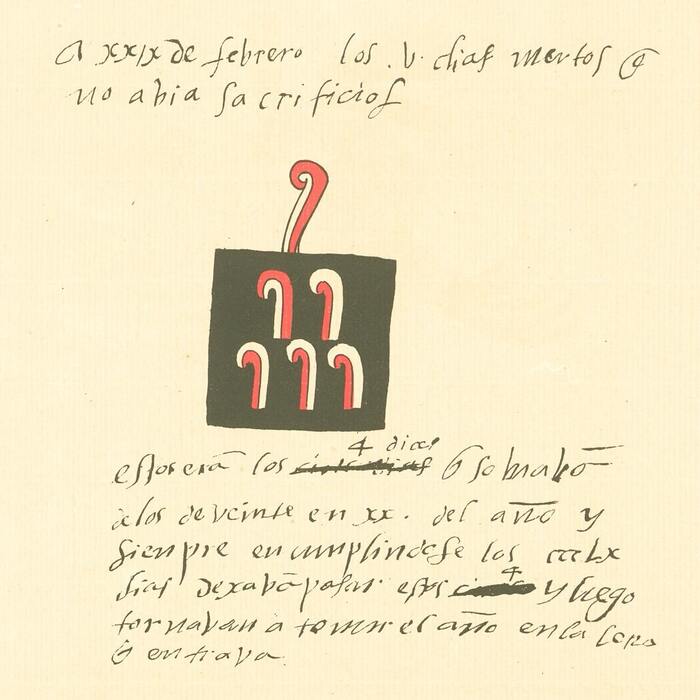 a xxix de febrero los .v. dias mertos q̃
no abia sacrificios
4 dias
estos erā los q̃ sobrabā
a los de veinte en xx. del año y
siempre en cumplindose los ccclx
dias dexavā pasar estos 4 y luego
tornavan a tomar el año en la letra
q̃ entrava